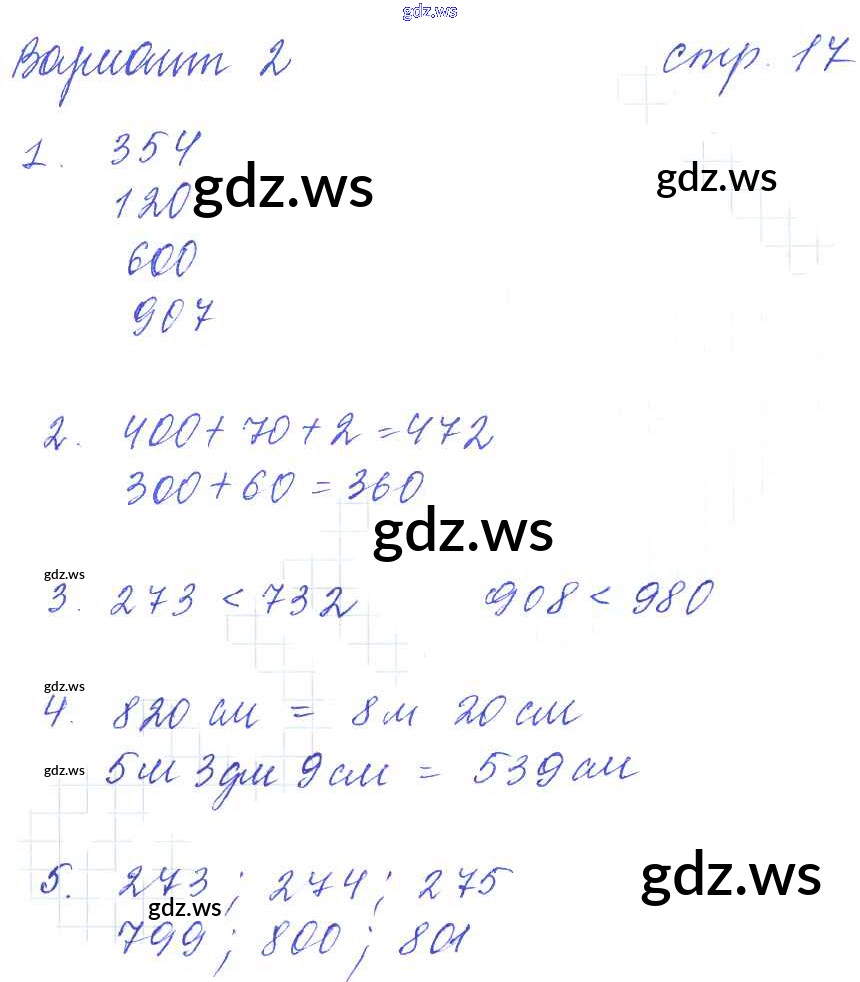 gdz.ws
Вариант 2 стр. 17
1. 354
gdz.ws
gdz.ws
120
600
907
2. 400+70+2=472
300+60=360
gdz.ws
gdz.ws
3. 273<732 908<980
gdz.ws
4. 820 см = 8м 20 см
gdz.ws
5м 3дм 9см = 539см
gdz.ws
5. 273; 274; 275
gdz.ws
799; 800; 801